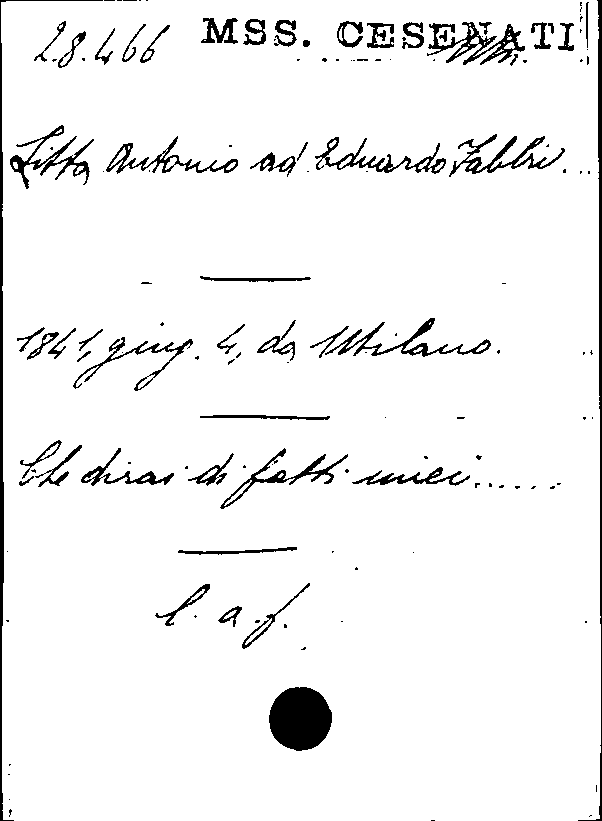 28.466 MSS. CESENATI
Litta Antonio ad Eduardo Fabbri...
1841, giug. 4, da Milano.
Che dirai di fatti miei......
l. a. f.